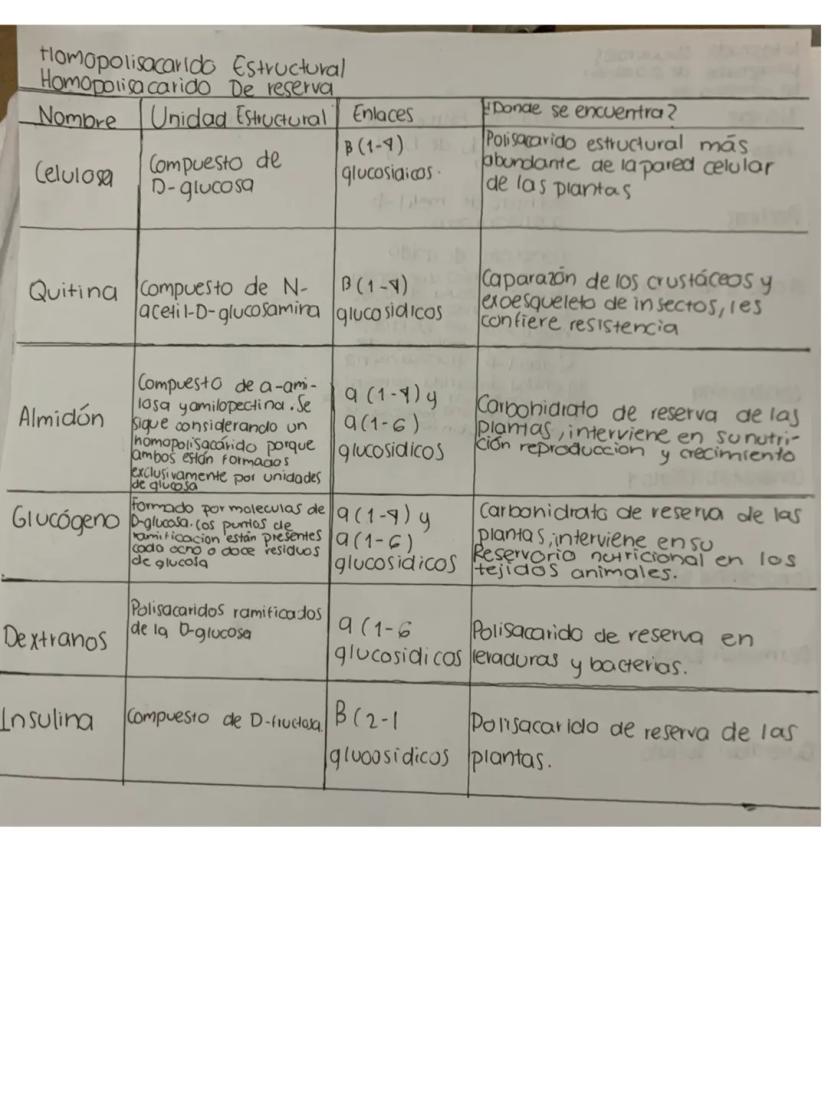 Homopolisacarido Estructural
Homopolisacarido De reserva
Nombre Unidad Estructural Enlaces ¿Donde se encuentra?
Celulosa
Compuesto de
D-glucosa
B (1-4)
glucosidicos.
Polisacarido estructural más
abundante de la pared celular
de las plantas
Quitina
Compuesto de N-
acetil-D-glucosamina
B (1-4)
glucosidicos
Caparazón de los crustáceos y
exoesqueleto de insectos, les
confiere resistencia
Almidón
Compuesto de a-ami-
losa y amilopectina. Se
sigue considerando un
homopolisacárido porque
ambos están formados
exclusivamente por unidades
de glucosa
a (1-4) y
a (1-6)
glucosidicos
Carbohidrato de reserva de las
plantas, interviene en su nutri-
ción reproduccion y crecimiento
Glucógeno
Formado por moleculas de
D-glucosa. Los puntos de
ramificacion están presentes
cada ocho o doce residuos
de glucosa
a (1-4) y
a (1-6)
glucosidicos
Carbohidrato de reserva de las
plantas, interviene en su
Reservorio nutricional en los
tejidos animales.
Dextranos
Polisacaridos ramificados
de la D-glucosa
a (1-6
glucosidicos
Polisacarido de reserva en
levaduras y bacterias.
Insulina
Compuesto de D-fructosa.
B (2-1
glucosidicos
Polisacarido de reserva de las
plantas.